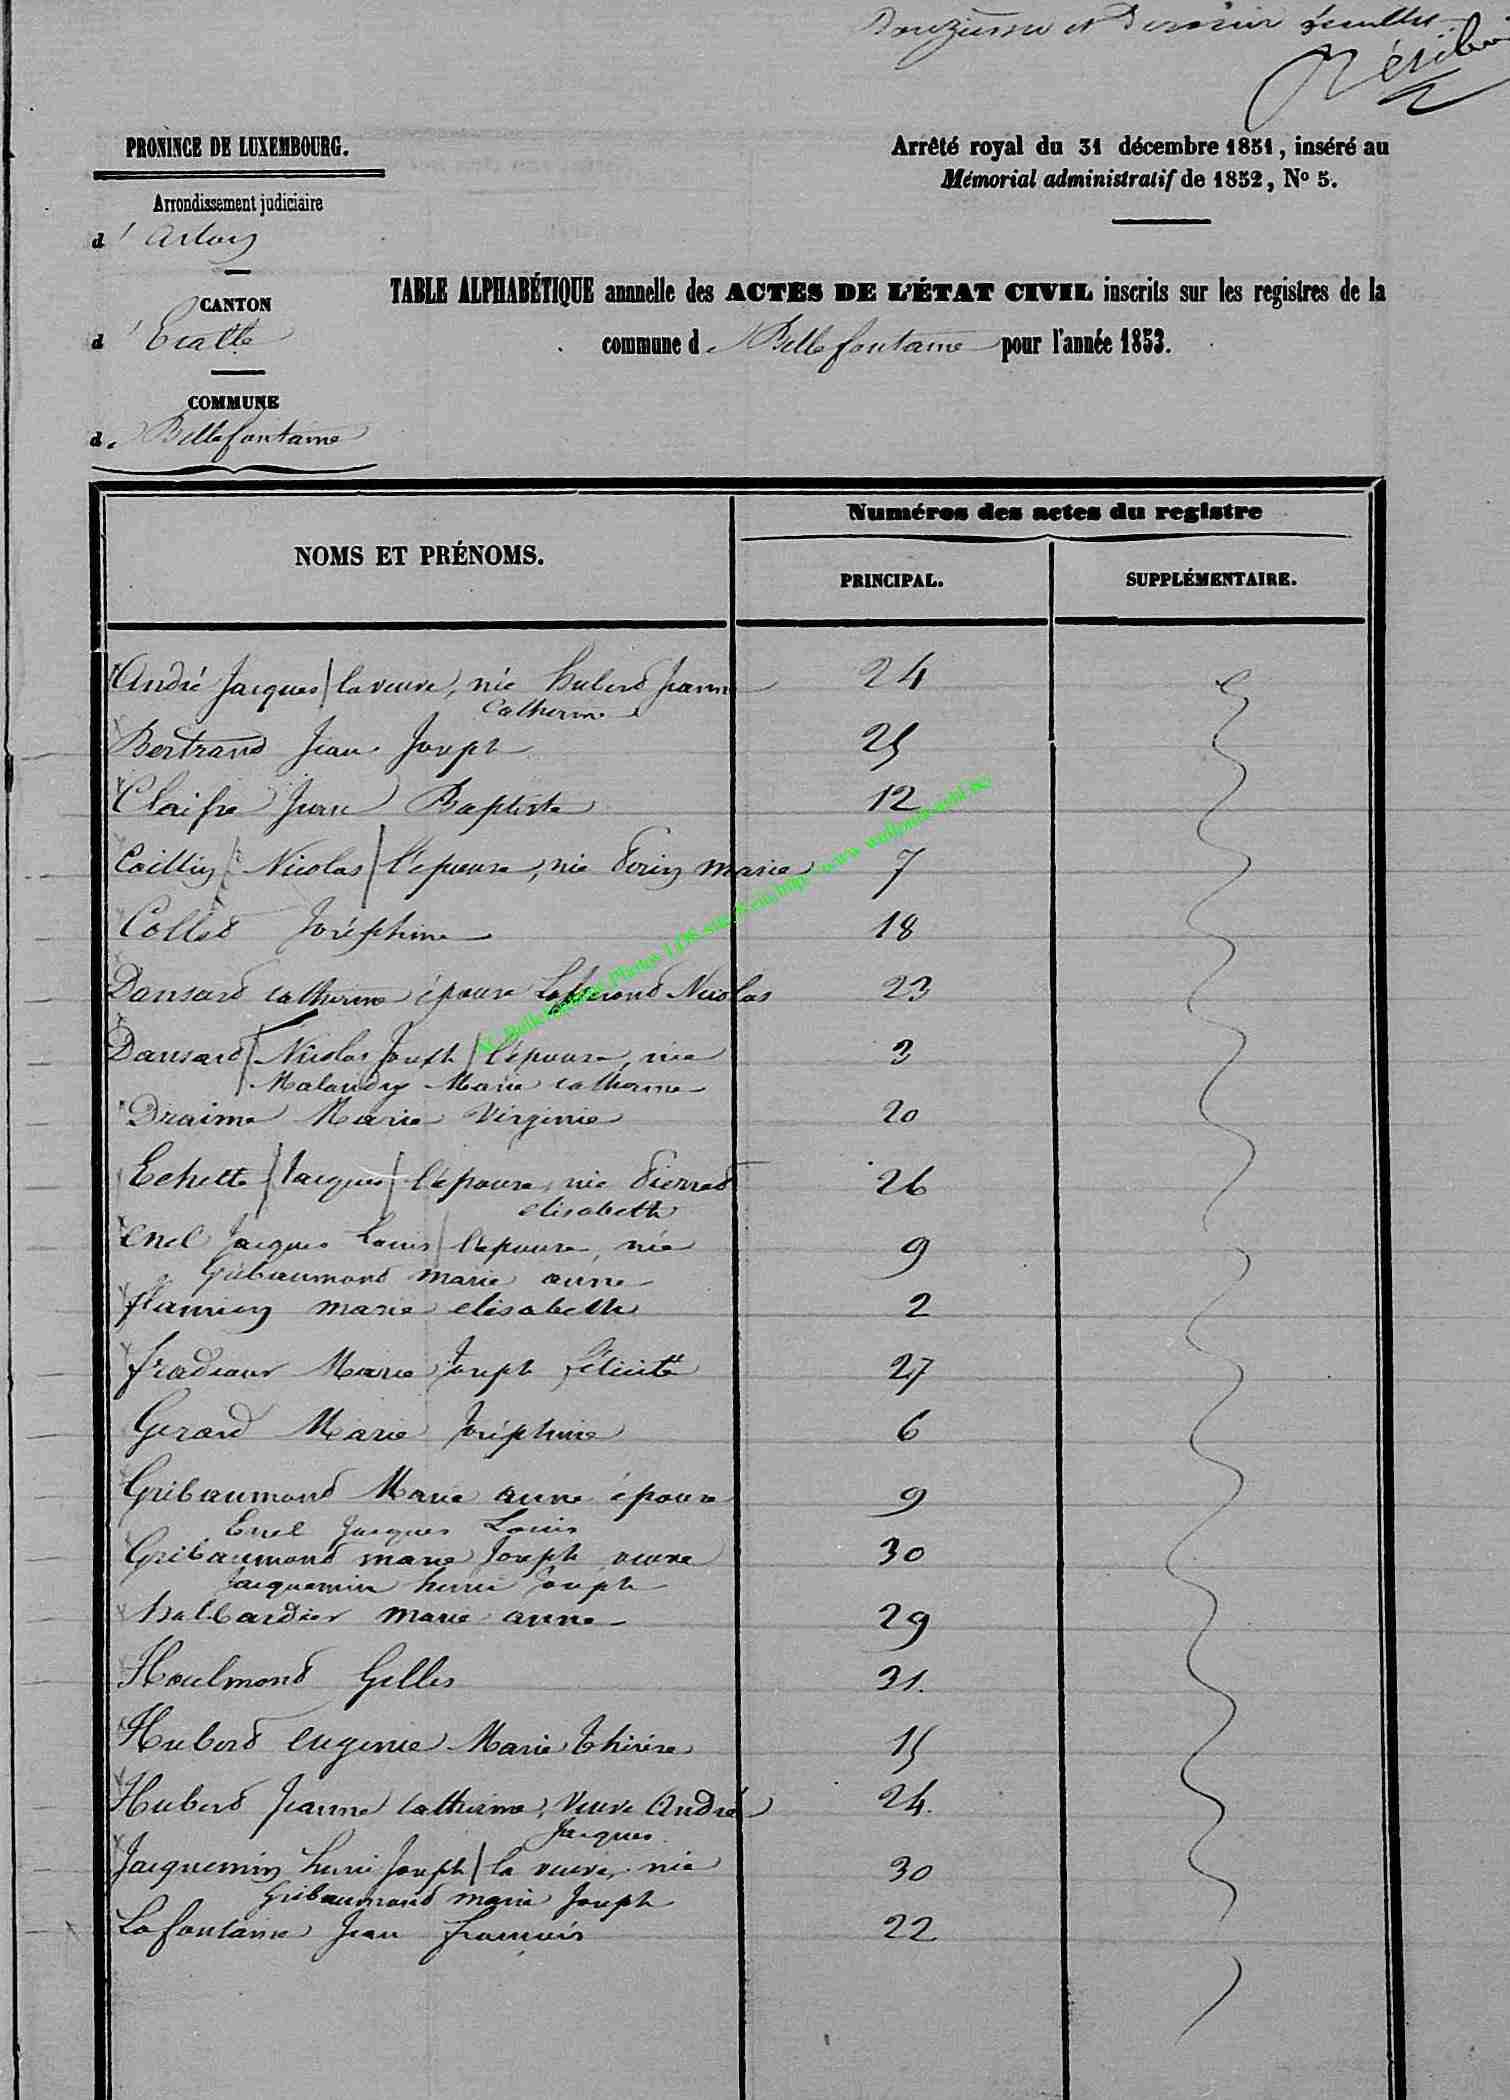 Douzième et Dernier feuillet
PROVINCE DE LUXEMBOURG.
Arrêté royal du 31 décembre 1851, inséré au
Mémorial administratif de 1852, No 5.
Arrondissement judiciaire
d'Arlon
CANTON
d'Etalle
COMMUNE
de Bellefontaine
TABLE ALPHABÉTIQUE annuelle des ACTES DE L'ÉTAT CIVIL inscrits sur les registres de la
commune de Bellefontaine pour l'année 1853.
NOMS ET PRÉNOMS.
Numéros des actes du registre
PRINCIPAL.
SUPPLÉMENTAIRE.
André Jacques / la veuve, née Huberd Jeanne 24
Catherine
Bertrand Jean Joseph 25
Claifre Jean Baptiste 12
Nicolas / l'épouse, née marie 7
Colled Joséphine 18
Dansard catherine épouse Nicolas 23
Dansard / Nicolas Joseph / l'épouse, née 3
Malandry Marie catherine
Draime Marie Virginie 20
Echette / Jacques / l'épouse, née Pierred 26
elisabeth
Enel Jacques Louis / l'épouse, née 9
Gribaumond marie anne
flamion marie elisabeth 2
Marie Joseph félicité 27
Gerard Marie Joséphine 6
Gribaumond Marie anne épouse 9
Enel Jacques Louis
Gribaumond marie Joseph veuve 30
Jacquemin henri Joseph
halbardier marie anne 29
Houlmond Gilles 31.
Huberd eugenie Marie thérèse 15
Huberd Jeanne catherine, veuve André 24.
Jacques
Jacquemin henri Joseph / la veuve, née 30
Gribaumond marie Joseph
Lafontaine Jean francois 22